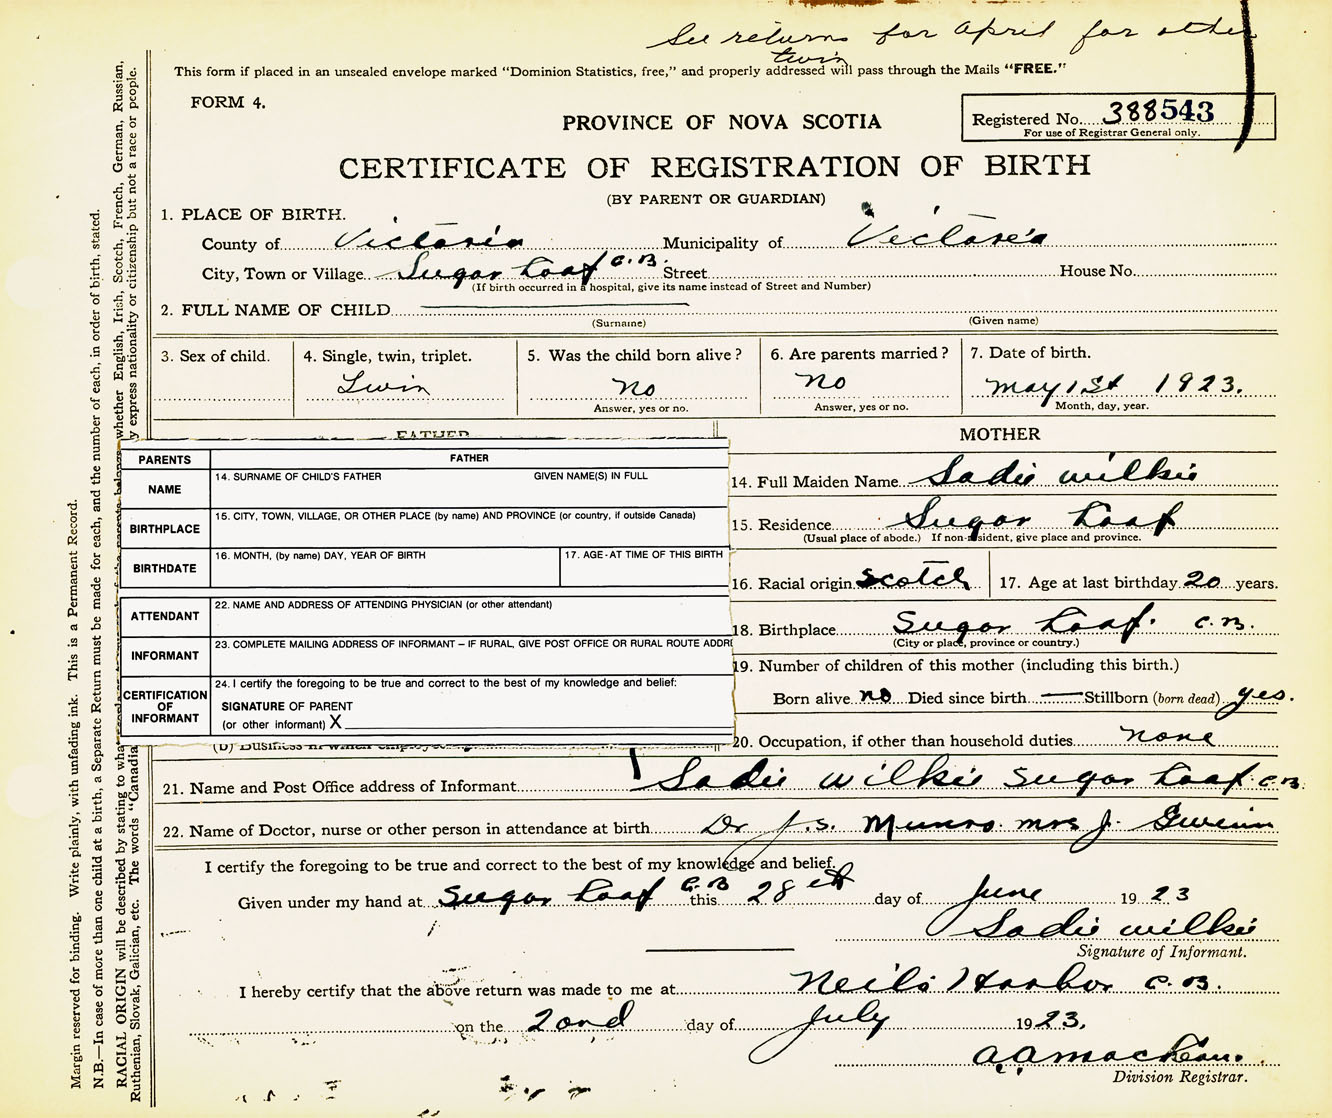 See returns for April for other
twin
This form if placed in an unsealed envelope marked "Dominion Statistics, free," and properly addressed will pass through the Mails "FREE."
FORM 4.
PROVINCE OF NOVA SCOTIA
Registered No. 388543
For use of Registrar General only.
CERTIFICATE OF REGISTRATION OF BIRTH
(BY PARENT OR GUARDIAN)
1. PLACE OF BIRTH.
County of Victoria Municipality of Victoria
City, Town or Village Sugar Loaf C.B. Street House No.
(If birth occurred in a hospital, give its name instead of Street and Number)
2. FULL NAME OF CHILD
(Surname) (Given name)
3. Sex of child. 4. Single, twin, triplet. 5. Was the child born alive? 6. Are parents married? 7. Date of birth.
Twin no no May 1st 1923.
Answer, yes or no. Answer, yes or no. Month, day, year.
FATHER MOTHER
PARENTS FATHER
NAME 14. SURNAME OF CHILD'S FATHER GIVEN NAME(S) IN FULL
BIRTHPLACE 15. CITY, TOWN, VILLAGE, OR OTHER PLACE (by name) AND PROVINCE (or country, if outside Canada)
BIRTHDATE 16. MONTH, (by name) DAY, YEAR OF BIRTH 17. AGE-AT TIME OF THIS BIRTH
ATTENDANT 22. NAME AND ADDRESS OF ATTENDING PHYSICIAN (or other attendant)
INFORMANT 23. COMPLETE MAILING ADDRESS OF INFORMANT – IF RURAL, GIVE POST OFFICE OR RURAL ROUTE ADDR
CERTIFICATION OF INFORMANT 24. I certify the foregoing to be true and correct to the best of my knowledge and belief:
SIGNATURE OF PARENT
(or other informant) X
14. Full Maiden Name Sadie Wilkie
15. Residence Sugar Loaf
(Usual place of abode.) If non-resident, give place and province.
16. Racial origin Scotch 17. Age at last birthday 20 years.
18. Birthplace Sugar Loaf. C.B.
(City or place, province or country.)
19. Number of children of this mother (including this birth.)
Born alive no Died since birth Stillborn (born dead) yes.
(b) Business in which employed
20. Occupation, if other than household duties none
21. Name and Post Office address of Informant Sadie Wilkie Sugar Loaf C.B.
22. Name of Doctor, nurse or other person in attendance at birth Dr J.S. Munro. Mrs J.
I certify the foregoing to be true and correct to the best of my knowledge and belief.
Given under my hand at Sugar Loaf C.B this 28 day of June 1923
Sadie Wilkie
Signature of Informant.
I hereby certify that the above return was made to me at Neils Harbor C.B.
on the 2ond day of July 1923.
Division Registrar.
Margin reserved for binding. Write plainly, with unfading ink. This is a Permanent Record.
N.B.—In case of more than one child at a birth, a Separate Return must be made for each, and the number of each, in order of birth, stated.
RACIAL ORIGIN will be described by stating to what whether English, Irish, Scotch, French, German, Russian,
Ruthenian, Slovak, Galician, etc. The words "Canadia y express nationality or citizenship but not a race or people.